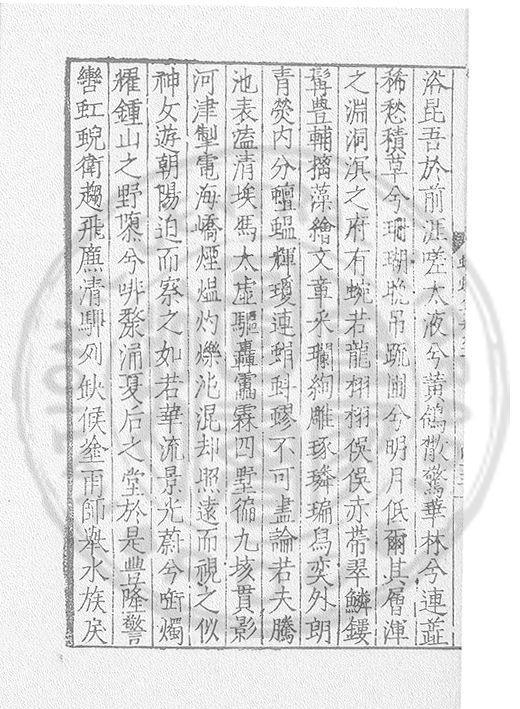 浴昆吾於前涯嗟太液兮黃鵠散驚華林兮連
稀愁積草兮珊瑚晚吊疏圃兮明月低爾其層渾
之淵洞溟之府有蜿若龍栩栩俁俁赤帶翠鱗鏤
鬐豐輔摛藻繪文章采斕絢雕琢璘㻞為奕外朗
青熒内分蟺蝹輝瓊連蜎蚪蟉不可盡論若夫騰
池表嗑清埃馮太虛驅轟霱霖四墅徧九垓貫影
河津掣電海嶠煙熅灼爍沱混却照遠而視之似
神女遊朝陽迫而察之如若華流景光蔚兮銜燭
耀鍾山之野隳兮啡漦涌夏后之堂於是豊隆警
轡虹蜺衛趨飛廉清馴列缺候塗雨師舉水族戾